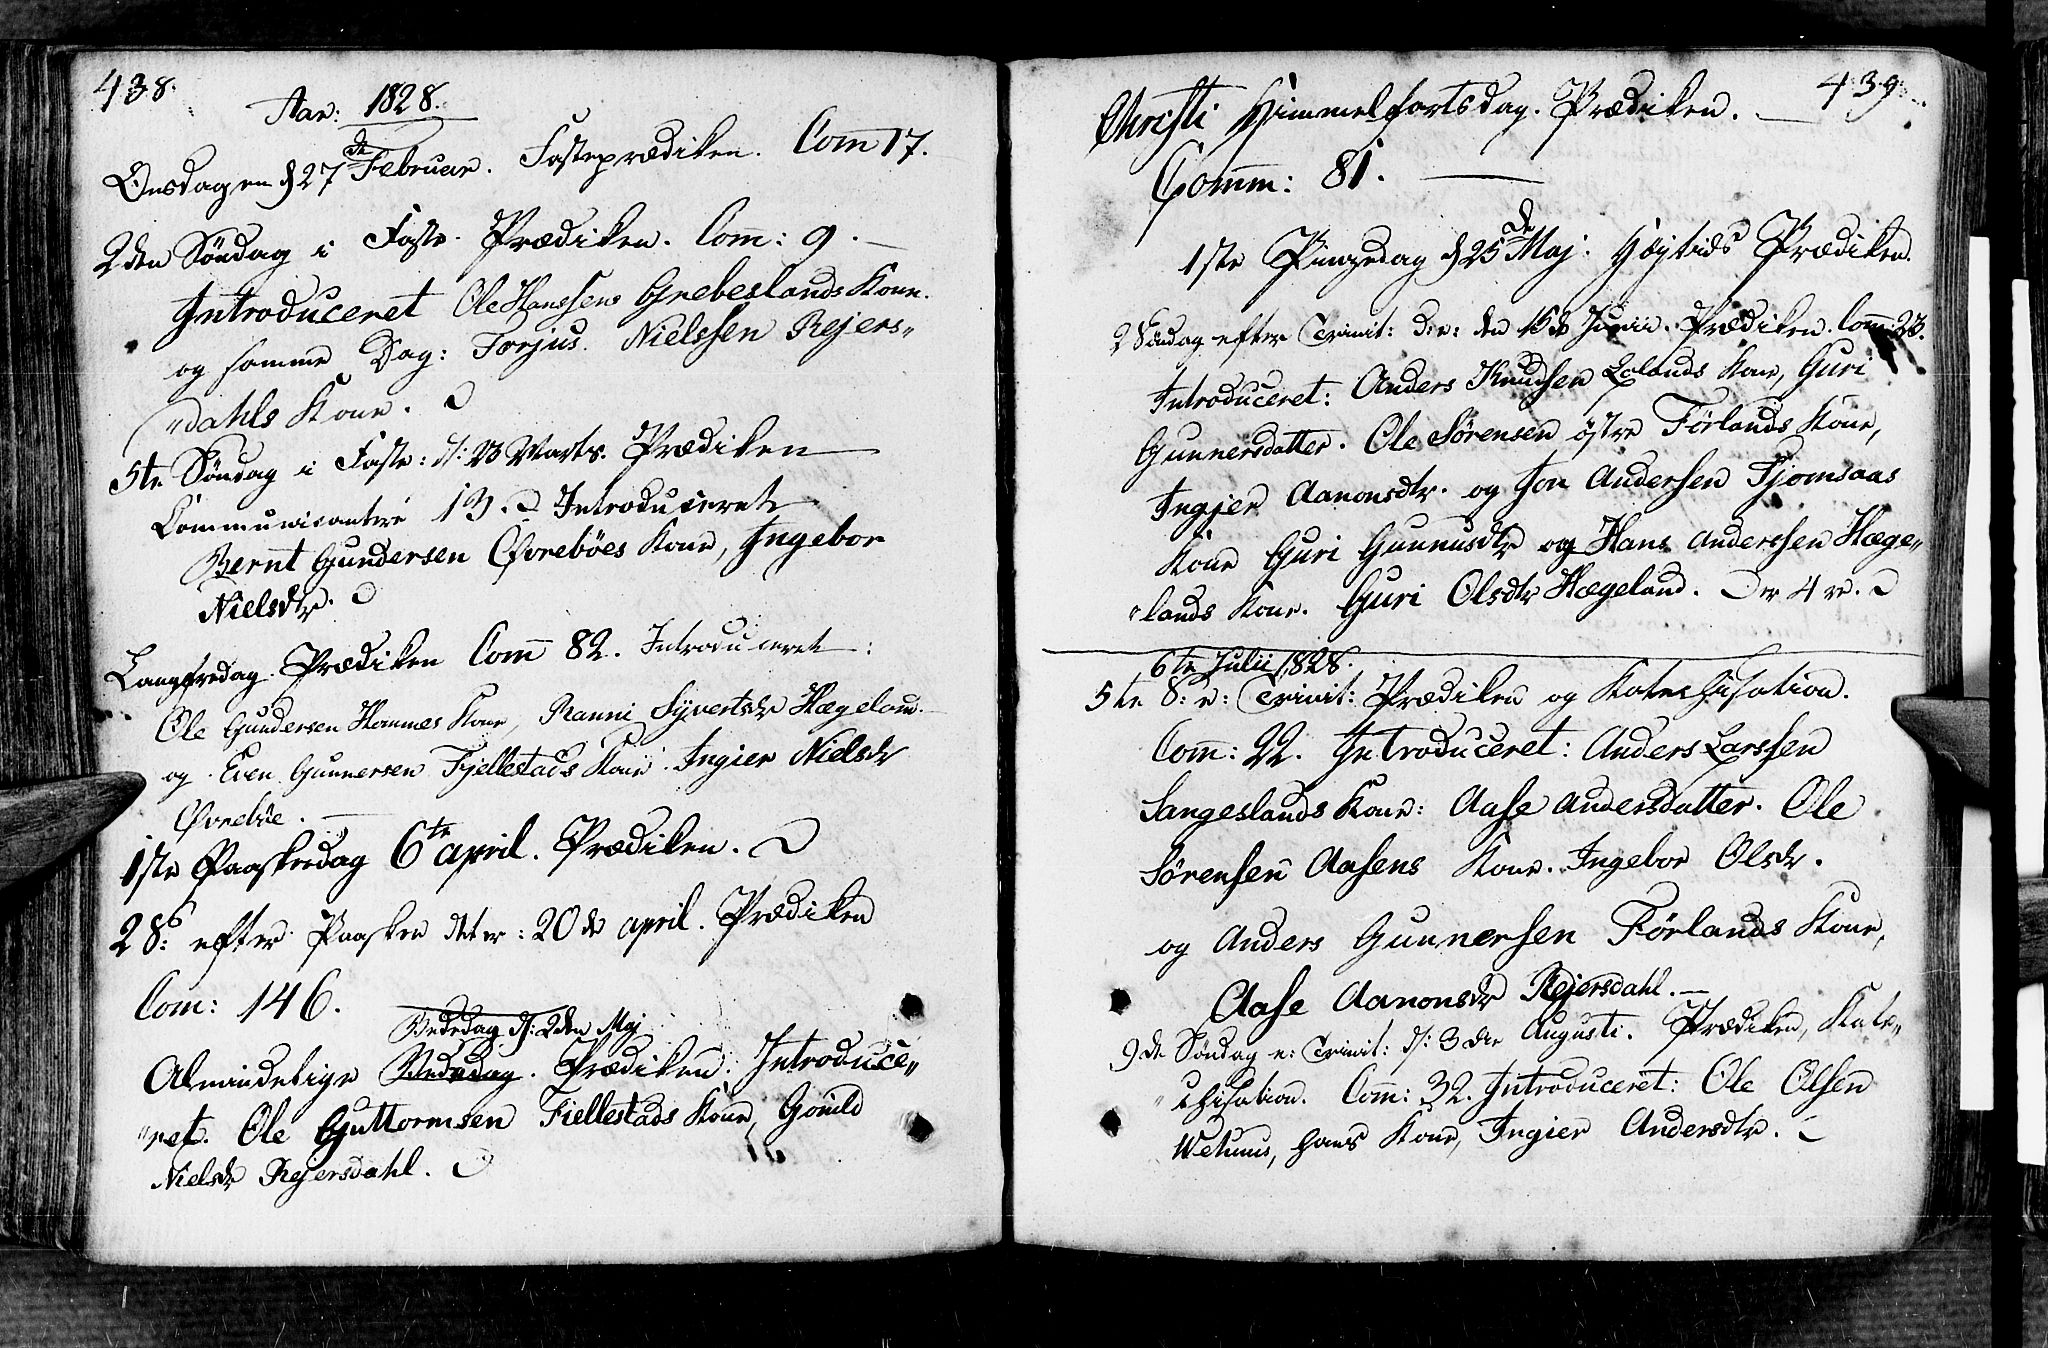 438.
Aar: 1828.
Onsdagen d 27de Februar. Fasteprædiken. Com 17.
2den Söndag i Faste. Prædiken. Com: 9.
Introduceret Ole Hanssens Grebeslands Kone.
og samme Dag: Torjus Nielssen Rejers„
„dahls Kone.
5te Söndag i Faste: d: 23 Marts. Prædiken
Communicantere 13. Introduceret
Bernt Gundersen Øvreböes Kone, Ingebor
Nielsdr.
Langfredag. Prædiken Com 82. Introduceret:
Ole Gundersen Homnes Kone, Ranni Syvertsdr Hægeland.
og Even Gunnersen Fjellestads Kone. Ingier Nielsdr
Øvreböe.
1ste Paaskedag 6te april. Prædiken.
2 S: efter Paasken det er: 20de april. Prædiken
Com: 146.
Bededag d: 2den Maj
Almindelige Bededag. Prædiken. Introduce„
„ret. Ole Guttormsen Fiellestads Kone, Gonild
Nielsdr Rejersdahl.
439.
Christi Himmelfartsdag. Prædiken.
Comm: 81.
1ste Pintzedag d 25de Maj: Høytids Prædiken.
2 Söndag efter Trinit: d.e: den 15de Junii. Prædiken. Com: 23.
Introduceret: Anders Knudsen Lolands Kone, Guri
Gunnersdatter. Ole Sørensen östre Førlands Kone,
Ingjer Aanonsdtr. og Jon Andersen Fjomsaas
Kone Guri Gunnusdtr og Hans Anderssen Hæge„
„lands Kone. Guri Olsdtr Hægeland. Der 4re.
6te Julii 1828.
5te S: e: Trinit: Prædiken og Katechisation.
Com: 22. Introduceret: Anders Larssen
Sangeslands Kone: Aase Andersdatter. Ole
Sørensen Aasens Kone. Ingebor Olsdr.
og Anders Gunnersen Førlands Kone,
Aase Aanonsdr Rejersdahl.
9de Söndag e: Trinit: d: 3die Augusti. Prædiken, Kate„
„chisation. Com: 32. Introduceret: Ole Olsen
Wehuus, hans Kone, Ingier Andersdtr.